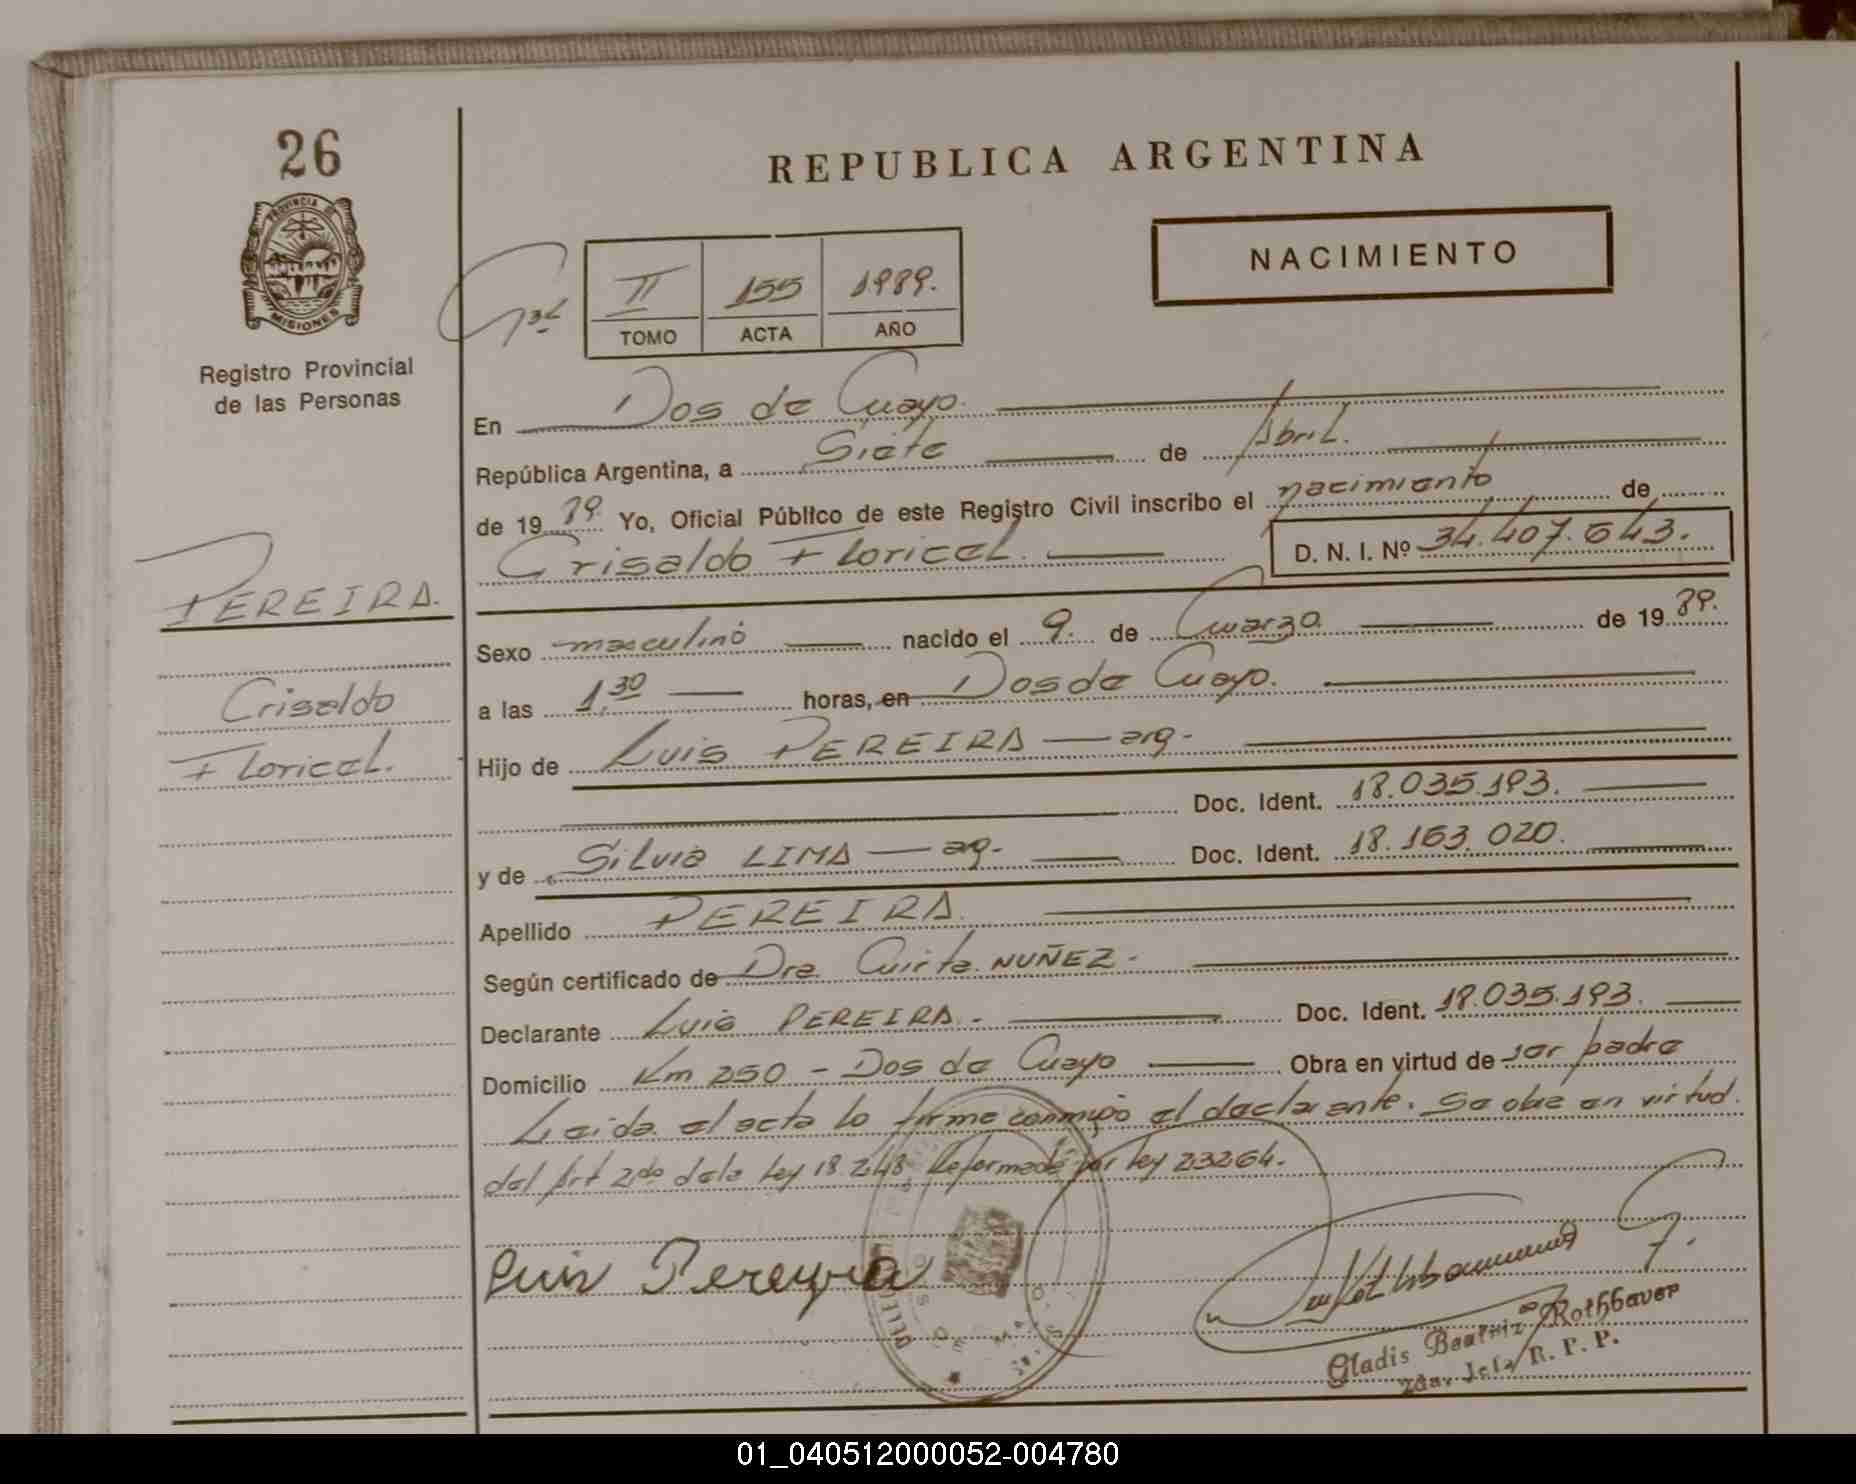 26
REPUBLICA ARGENTINA
NACIMIENTO
PROVINCIA DE
MISIONES
Registro Provincial
de las Personas
II 155 1989.
TOMO ACTA AÑO
En Dos de Mayo.
República Argentina, a Siete de Abril.
de 19 89. Yo, Oficial Público de este Registro Civil inscribo el nacimiento de
Crisaldo Floricel. D. N. I. Nº 34.407.643.
PEREIRA.
Crisaldo
Floricel.
Sexo masculino nacido el 9. de Marzo. de 19 89.
a las 1,30 horas, en Dos de Mayo.
Hijo de Luis PEREIRA — arg.
Doc. Ident. 18.035.193.
y de Silvia LIMA — arg. Doc. Ident. 18.163.020.
Apellido PEREIRA.
Según certificado de Dra Mirta NUÑEZ.
Declarante Luis PEREIRA. Doc. Ident. 18.035.193.
Domicilio Km 250 - Dos de Mayo Obra en virtud de ser padre
Leida el acta la firma conmigo el declarante. Se obra en virtud.
del Art 2do dela Ley 18.248 Reformada por Ley 23264.
Luis Pereyra
Gladis Beatriz Rothbauer
2da. Jefa R. P. P.
01_040512000052-004780